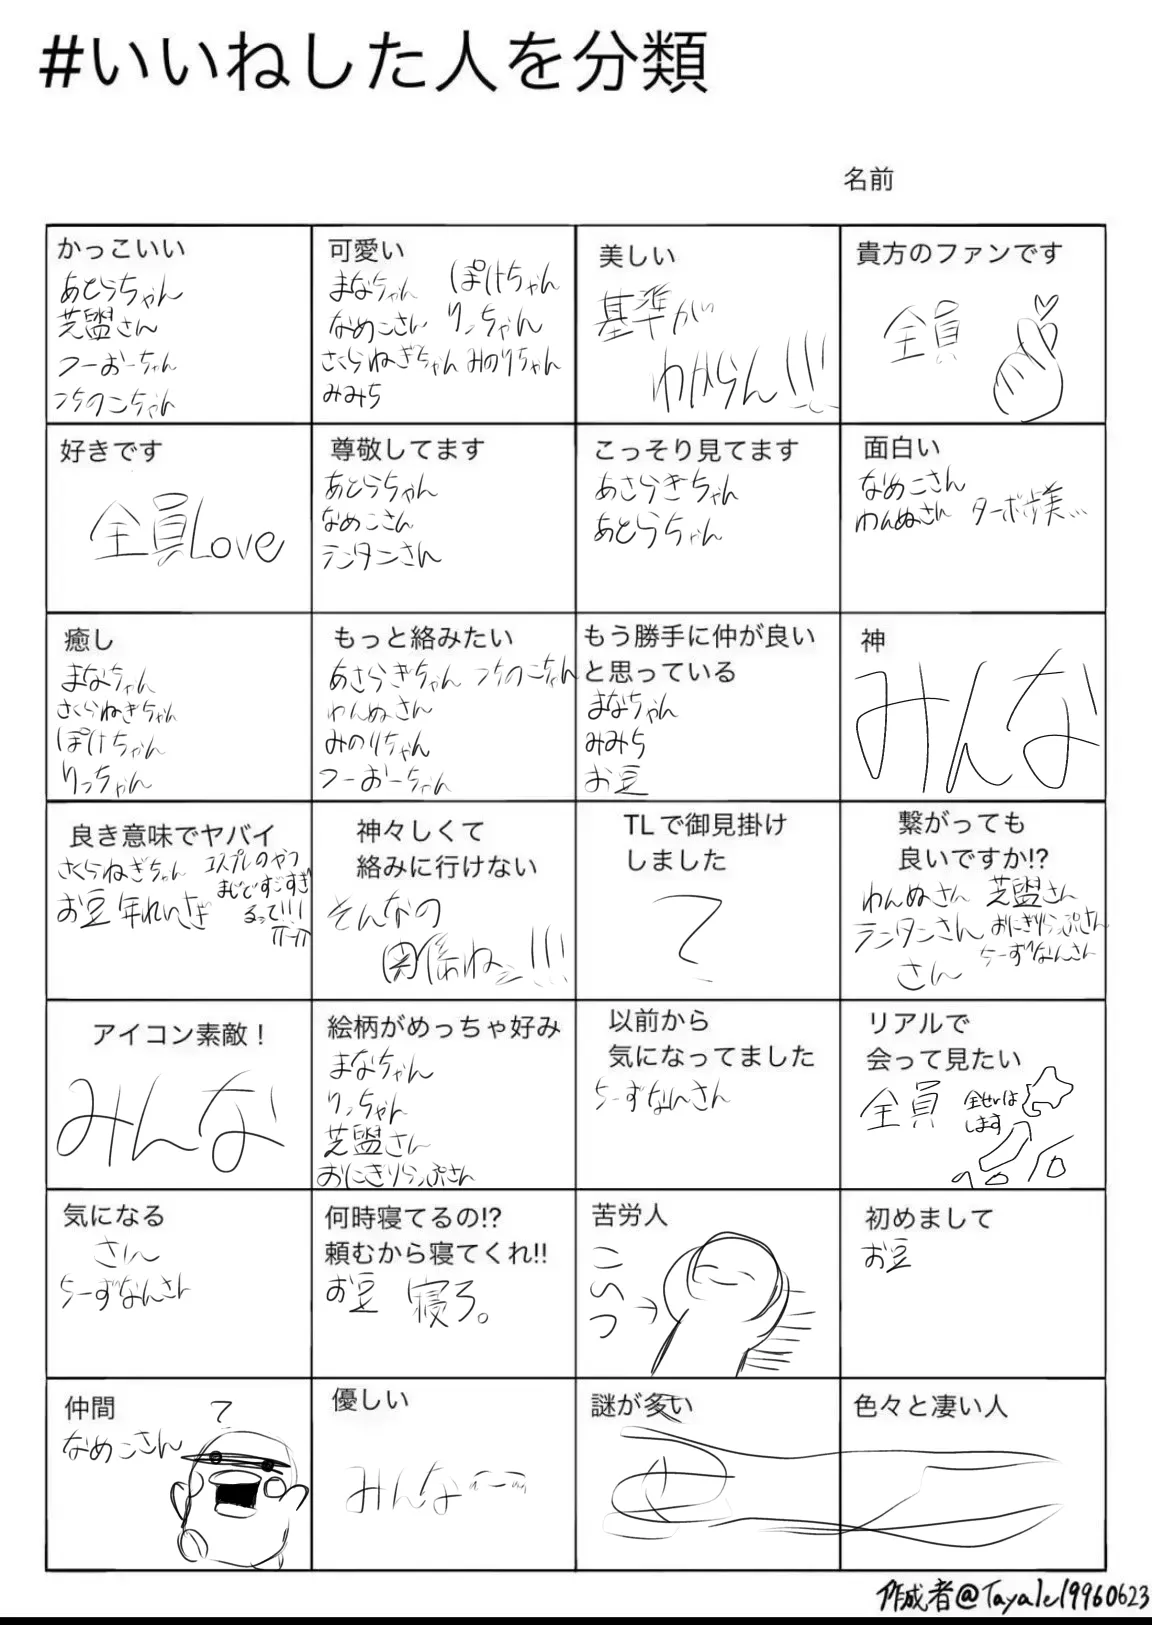 #いいねした人を分類
名前
かっこいい
あとらちゃん
芝盥さん
つーおーちゃん
つちのこちゃん
可愛い
まなちゃん ぽけちゃん
なめこさん りっちゃん
さくらねぎちゃん みのりちゃん
みみち
美しい
基準が
わからん!!!
貴方のファンです
全員
好きです
全員Love
尊敬してます
あとらちゃん
なめこさん
ランタンさん
こっそり見てます
あさらぎちゃん
あとらちゃん
面白い
なめこさん
わんぬさん ターボ歩美…
癒し
まなちゃん
さくらねぎちゃん
ぽけちゃん
りっちゃん
もっと絡みたい
あさらぎちゃん つちのこちゃん
わんぬさん
みのりちゃん
つーおーちゃん
もう勝手に仲が良い
と思っている
まなちゃん
みみち
お豆
神
みんな
良き意味でヤバイ
さくらねぎちゃん コスプレのやつ
まじですごすぎ
るって!!!
お豆 年れいさぎ
神々しくて
絡みに行けない
そんなの
関係ねェ!!!
TLで御見掛け
しました
て
繋がっても
良いですか!?
わんぬさん 芝盥さん
ランタンさん おにぎりらんぷさん
らーずなんさん
さん
アイコン素敵！
みんな
絵柄がめっちゃ好み
まなちゃん
りっちゃん
芝盥さん
おにぎりらんぷさん
以前から
気になってました
らーずなんさん
リアルで
会って見たい
全員
します
気になる
さん
らーずなんさん
何時寝てるの!?
頼むから寝てくれ!!
お豆 寝ろ。
苦労人
こいつ
初めまして
お豆
仲間
なめこさん
?
優しい
みんな
謎が多い
色々と凄い人
作成者@Tayale19960623